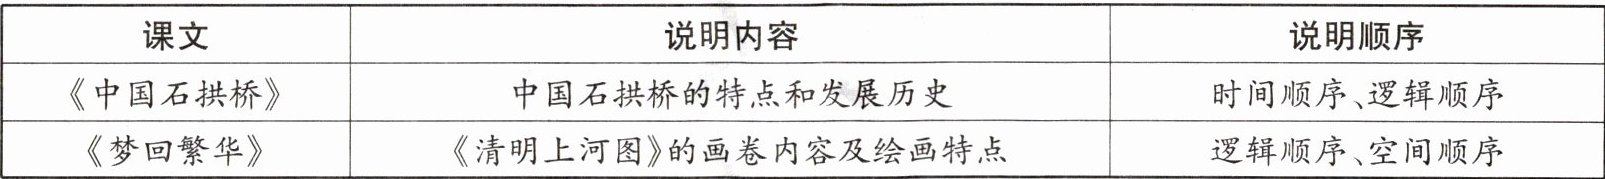 课文 说明内容 说明顺序
《中国石拱桥》 中国石拱桥的特点和发展历史 时间顺序、逻辑顺序
《梦回繁华》 《清明上河图》的画卷内容及绘画特点 逻辑顺序、空间顺序